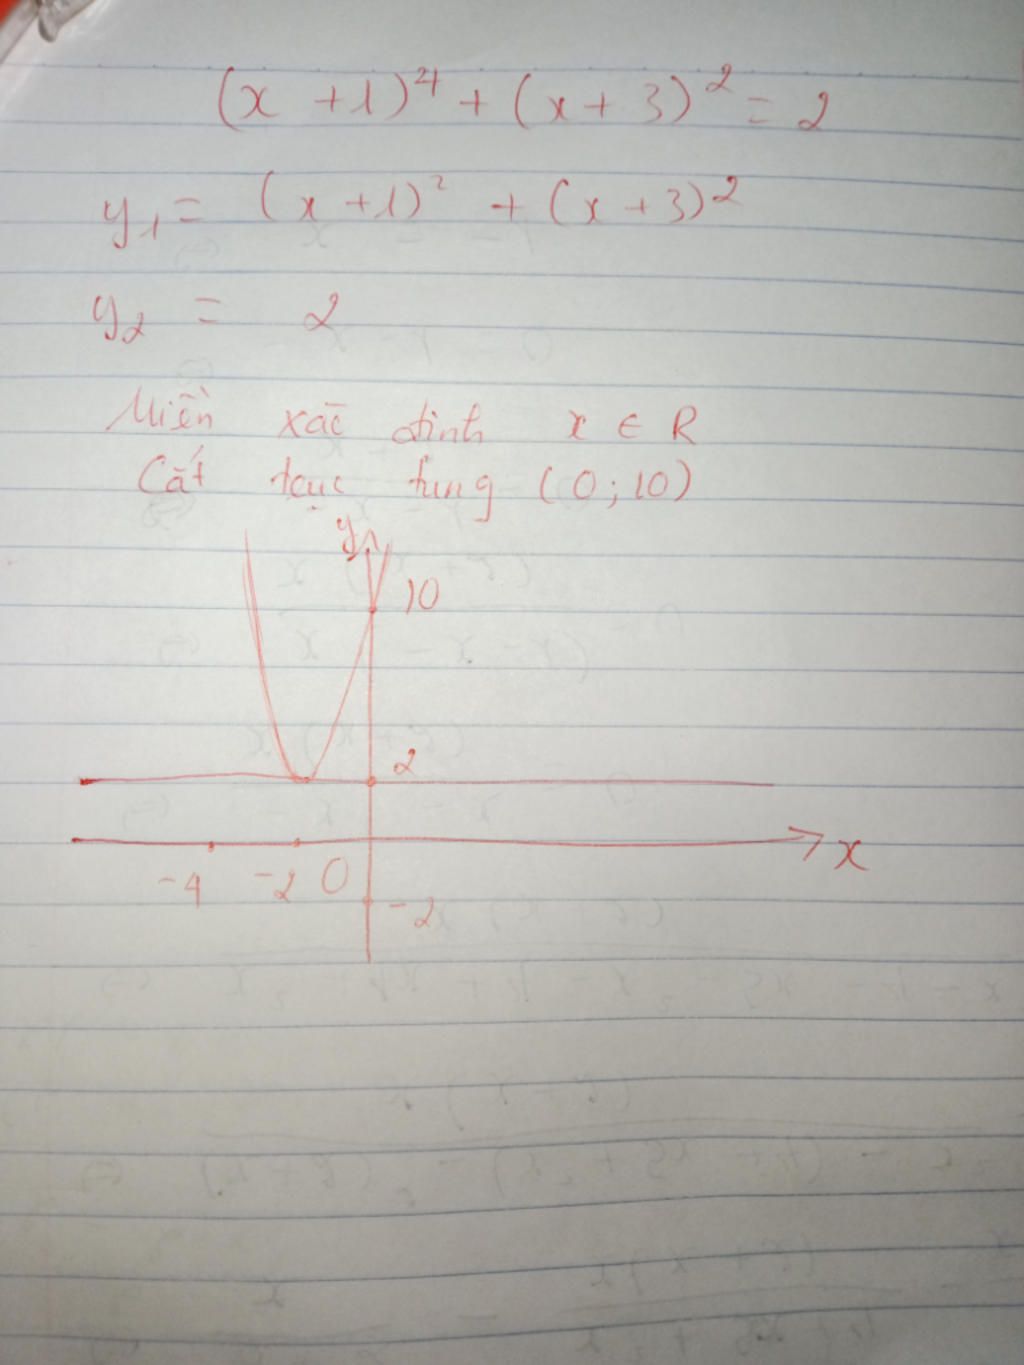 (x + 1)⁴ + (x + 3)² = 2
y₁ = (x + 1)² + (x + 3)²
y₂ = 2
Miền xác định x ∈ R
Cắt trục tung (0; 10)
y
10
2
x
-4 -2 0
-2